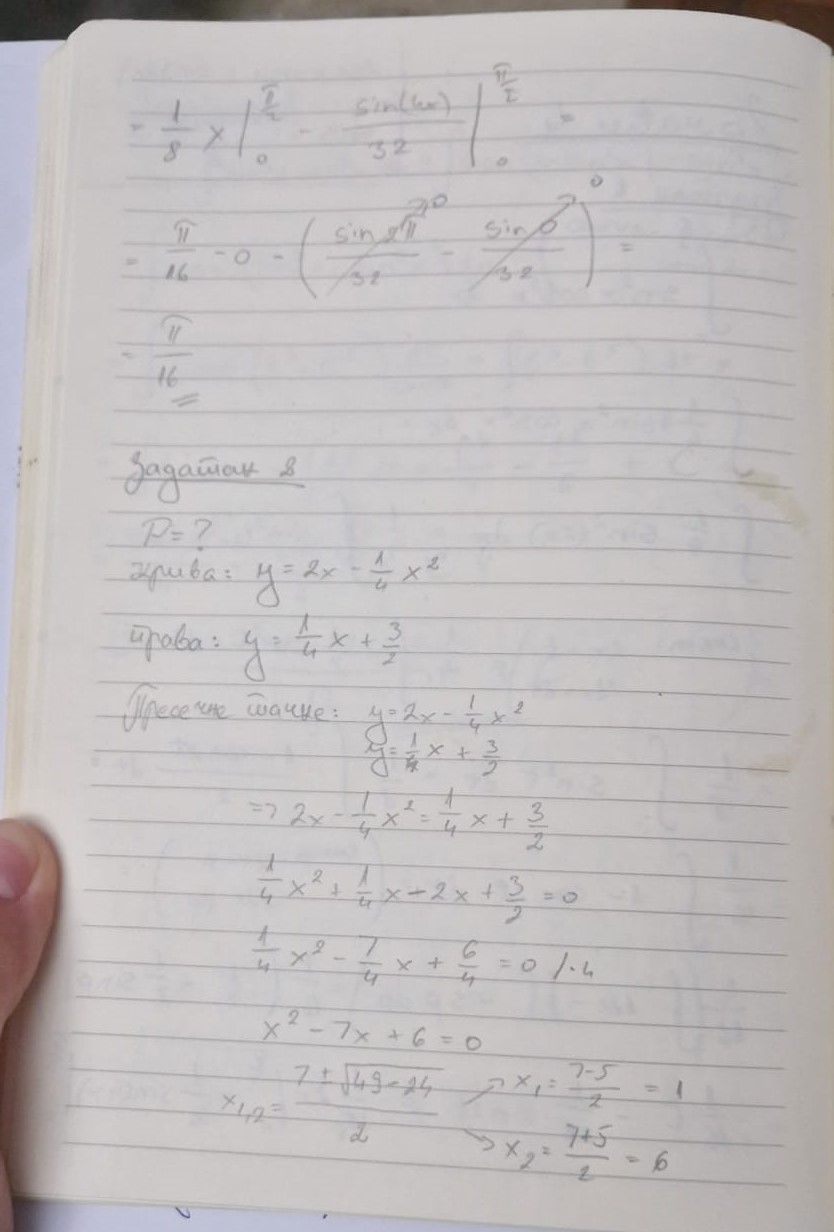 = 1/8 x |₀^(π/2) - sin(4x)/32 |₀^(π/2) =
= π/16 - 0 - (sin 2π/32 →0 - sin 0/32 →0) =
= π/16
Задатак 8
P = ?
крива: y = 2x - 1/4 x²
права: y = 1/4 x + 3/2
Пресечне тачке: y = 2x - 1/4 x²
y = 1/4 x + 3/2
=> 2x - 1/4 x² = 1/4 x + 3/2
1/4 x² + 1/4 x - 2x + 3/2 = 0
1/4 x² - 7/4 x + 6/4 = 0 /·4
x² - 7x + 6 = 0
x₁,₂ = (7 ± √(49-24))/2 → x₁ = (7-5)/2 = 1
→ x₂ = (7+5)/2 = 6